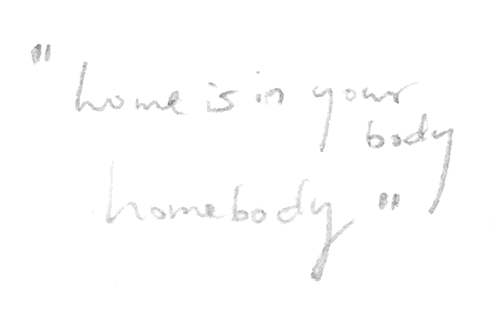 "home is in your
body
homebody"